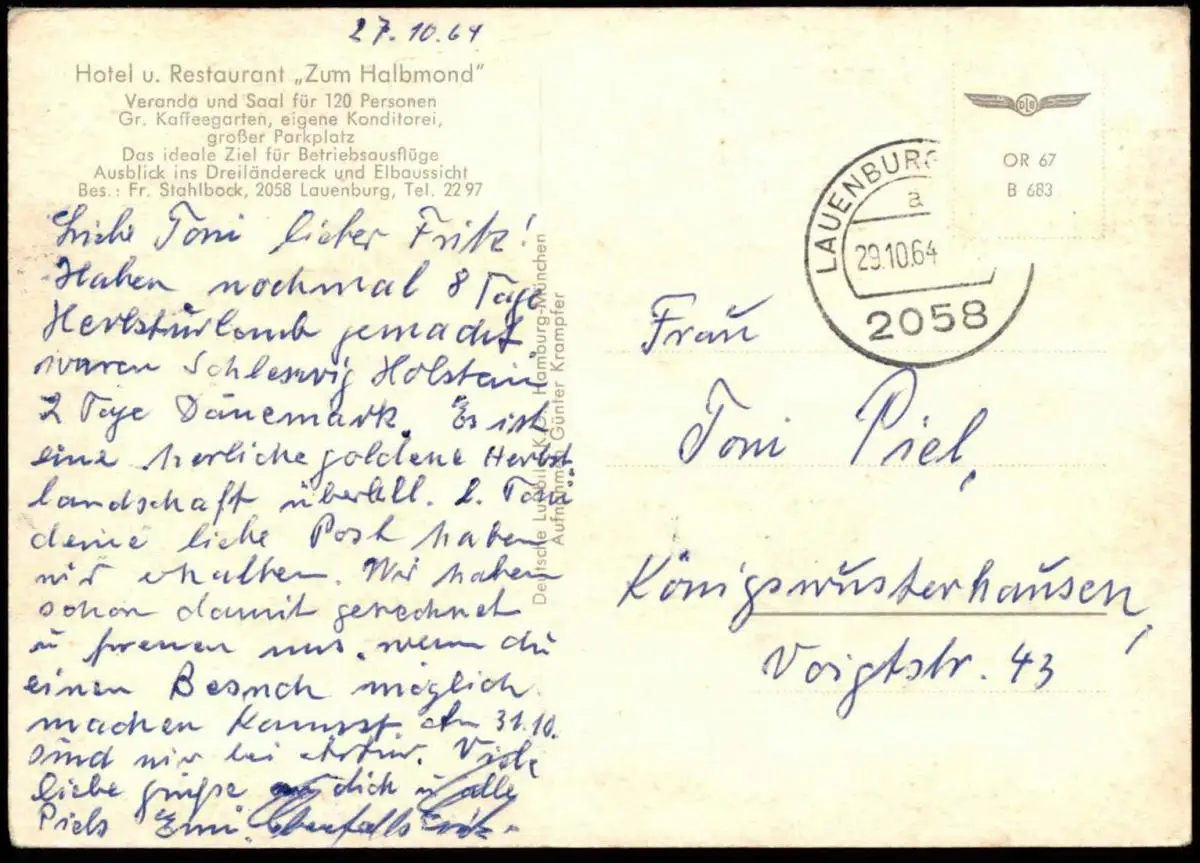 27.10.64
Hotel u. Restaurant „Zum Halbmond"
Veranda und Saal für 120 Personen
Gr. Kaffeegarten, eigene Konditorei,
großer Parkplatz
Das ideale Ziel für Betriebsausflüge
Ausblick ins Dreiländereck und Elbaussicht
Bes.: Fr. Stahlbock, 2058 Lauenburg, Tel. 22 97
Liebe Toni lieber Fritz!
Haben nochmal 8 Tage
Herbsturlaub gemacht
waren Schleswig Holstein
2 Tage Dänemark. Es ist
eine herliche goldene Herbst
landschaft überall. l. Toni
deine liebe Post haben
wir erhalten. Wir haben
schon damit gerechnet
u freuen uns, wenn du
einen Besuch möglich
machen kannst. Am 31.10.
sind wir bei Artur. Viele
liebe grüße dich u alle
Piels Emmi. Ebenfalls
Deutsche Luftbild K.G. Hamburg-München
Aufnahmen Günter Krampfer
DLB
OR 67
B 683
LAUENBURG
a
29.10.64
2058
Frau
Toni Piel,
Königswusterhausen,
Voigtstr. 43